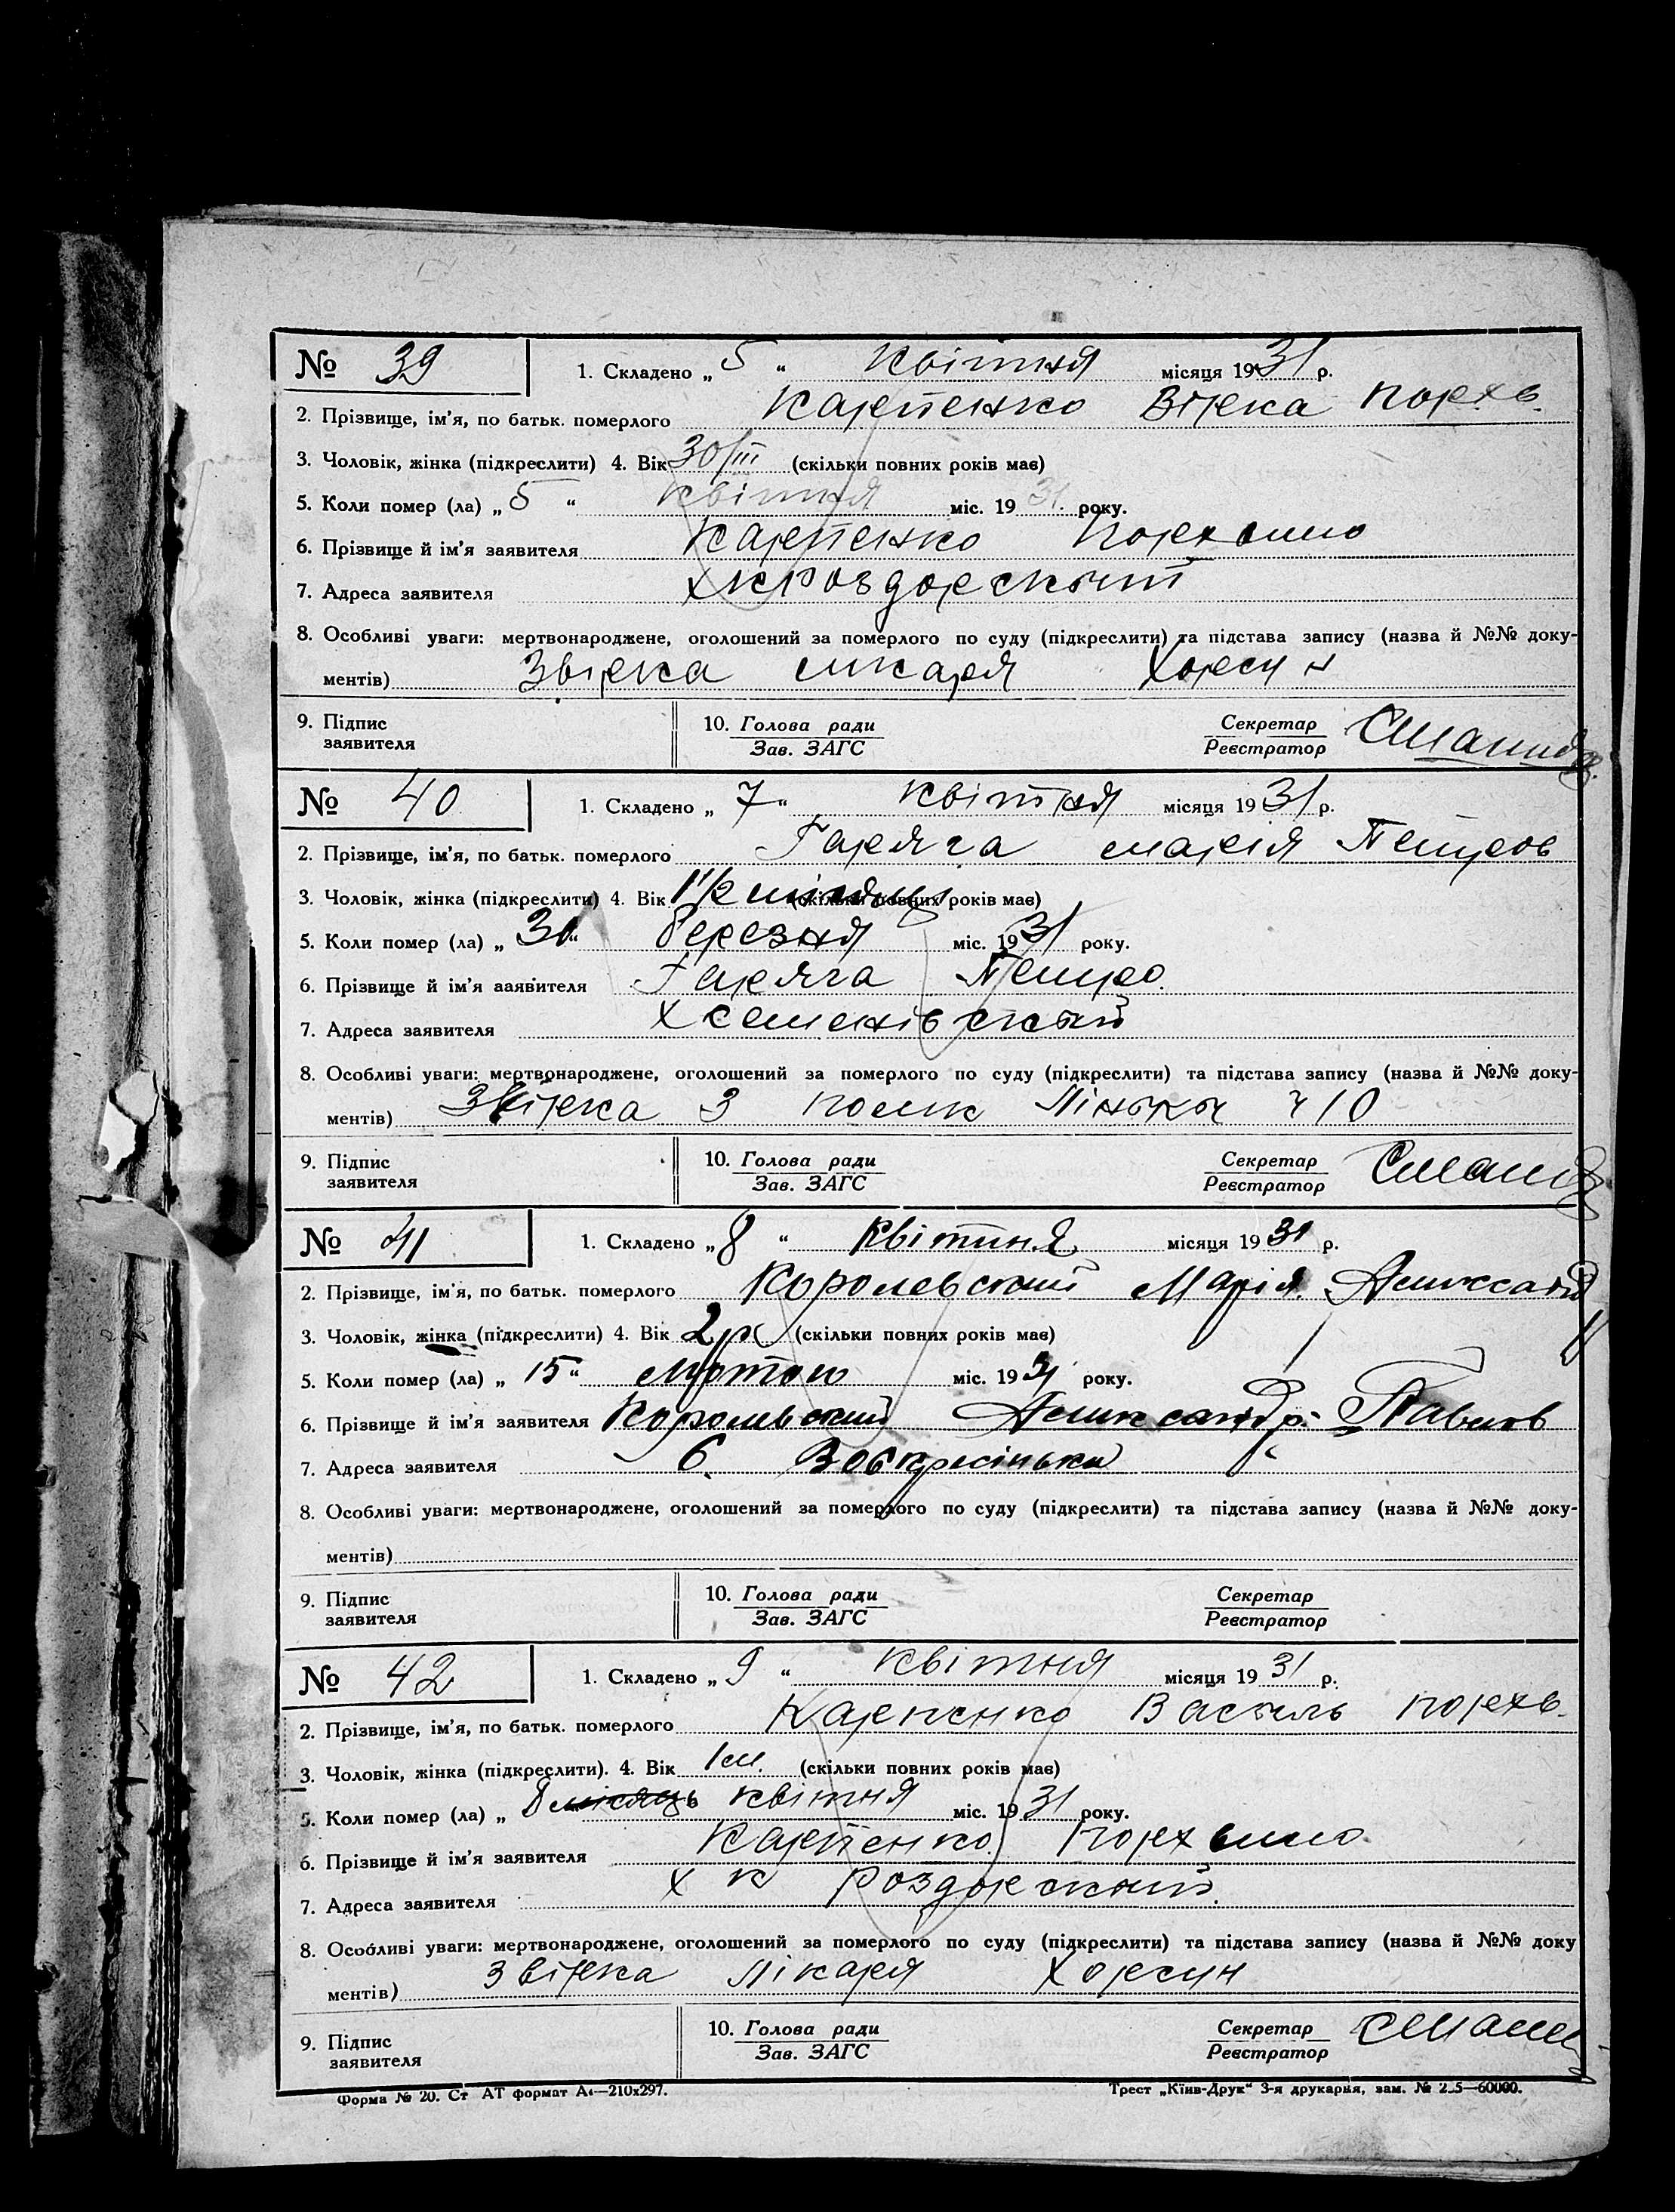 № 39 1. Складено „ 5 “ квітня місяця 1931 р.
2. Прізвище, ім'я, по батьк. померлого Карпенко Вірка порхв.
3. Чоловік, жінка (підкреслити) 4. Вік 30/III (скільки повних років має)
5. Коли помер (ла) „ 5 “ квітня міс. 19 31. року.
6. Прізвище й ім'я заявителя Карпенко
7. Адреса заявителя
8. Особливі уваги: мертвонароджене, оголошений за померлого по суду (підкреслити) та підстава запису (назва й №№ доку-
ментів) Звірка лікаря
9. Підпис заявителя 10. Голова ради Зав. ЗАГС Секретар Реєстратор
№ 40 1. Складено „ 7 “ квітня місяця 1931 р.
2. Прізвище, ім'я, по батьк. померлого Гаряга марія Петров
3. Чоловік, жінка (підкреслити) 4. Вік 1 1/2 (скільки повних років має)
5. Коли помер (ла) „ 30 “ березня міс. 1931 року.
6. Прізвище й ім'я ааявителя Гаряга Петро.
7. Адреса заявителя х семенівский
8. Особливі уваги: мертвонароджене, оголошений за померлого по суду (підкреслити) та підстава запису (назва й №№ доку-
ментів) Звірка з
9. Підпис заявителя 10. Голова ради Зав. ЗАГС Секретар Реєстратор
№ 41 1. Складено „ 8 “ квітння місяця 19 31 р.
2. Прізвище, ім'я, по батьк. померлого Королевский Марія Александ
3. Чоловік, жінка (підкреслити) 4. Вік 2 р (скільки повних років має)
5. Коли помер (ла) „ 15 “ лютого міс. 19 31 року.
6. Прізвище й ім'я заявителя Королевский Александр Павлов
7. Адреса заявителя с. Воскресінька
8. Особливі уваги: мертвонароджене, оголошений за померлого по суду (підкреслити) та підстава запису (назва й №№ доку-
ментів)
9. Підпис заявителя 10. Голова ради Зав. ЗАГС Секретар Реєстратор
№ 42 1. Складено „ 9 “ квітня місяця 19 31 р.
2. Прізвище, ім'я, по батьк. померлого Карпенко Василь порхв.
3. Чоловік, жінка (підкреслити). 4. Вік 1 м. (скільки повних років має)
5. Коли помер (ла) „ 8 місяць квітня міс. 19 31 року.
6. Прізвище й ім'я заявителя Карпенко
7. Адреса заявителя х к Роздорский.
8. Особливі уваги: мертвонароджене, оголошений за померлого по суду (підкреслити) та підстава запису (назва й №№ доку
ментів) звірка лікаря
9. Підпис заявителя 10. Голова ради Зав. ЗАГС Секретар Реєстратор
Форма № 20. Ст АТ формат А4—210х297. Трест „Київ-Друк“ 3-я друкарня, зам. № 2_5—60000.